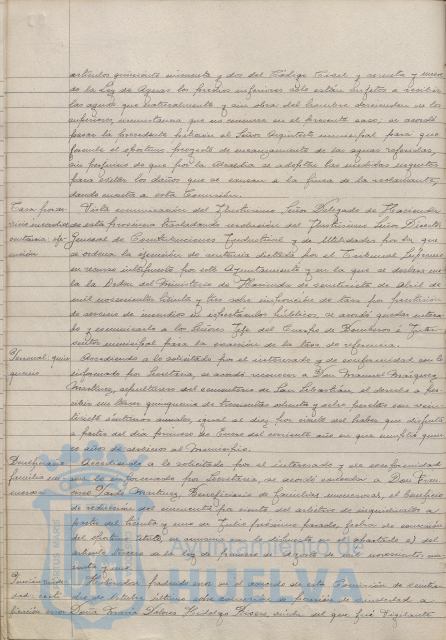 artículos quinientos cincuenta y dos del Código Civil y sesenta y nueve
de la Ley de Aguas los predios inferiores sólo están sujetos a recibir
las aguas que naturalmente y sin obra del hombre descienden de los
superiores, circunstancia que no concurre en el presente caso; se acordó
pasar la precedente petición al Señor Arquitecto municipal para que
formule el oportuno proyecto de encauzamiento de las aguas referidas,
sin perjuicio de que por la Alcaldía se adopten las medidas urgentes
para evitar los daños que se causan a la finca de la reclamante,
dando cuenta a esta Comisión.
Tasa por ser- Vista comunicación del Ilustrísimo Señor Delegado de Hacienda
vicio incendios de esta provincia trasladando resolución del Ilustrísimo Señor Director
General de Contribuciones y de Utilidades por la que
se ordena la ejecución de sentencia dictada por el Tribunal Supremo
en recurso interpuesto por este Ayuntamiento y en la que se declara nu-
la la Orden del Ministerio de Hacienda de veintisiete de Abril de
mil novecientos y tres sobre imposición de tasa por prestación
de servicio de incendios en espectáculos públicos, se acordó quedar entera-
do y comunicarlo a los Señores Jefe del Cuerpo de Bomberos e Inter-
ventor municipal para la exacción de la tasa de referencia.
Personal: quin- Accediendo a lo solicitado por el interesado y de conformidad con lo
quenio informado por Secretaría, se acordó reconocer a Don Manuel
Martínez, sepulturero del cementerio de San Sebastián, el derecho a per-
cibir un quinquenio de
céntimos anuales, igual al diez por ciento del haber que disfruta
a partir del día primero de Enero del corriente año en que cumplió quin-
ce años de servicios al Municipio.
Beneficiario Accediendo a lo solicitado por el interesado y de conformidad
familia nu- con lo informado por Secretaría, se acordó conceder a Don
merosa Martínez, Beneficiario de familias numerosas, el beneficio
de reducción del cincuenta por ciento del arbitrio de inquilinato a
partir del treinta y uno de Julio próximo pasado, fecha de concesión
del oportuno título, en armonía con lo dispuesto en el apartado a) del
artículo tercero de la Ley de primero de Agosto de mil novecientos cua-
renta y uno.
Habiendo padecido error en el acuerdo de esta Comisión de veintiuno
de Octubre último sobre concesión de pensión de viudedad a
Doña María Dolores Hidalgo viuda del que fué Vigilante
Ayuntamiento de
HUELVA